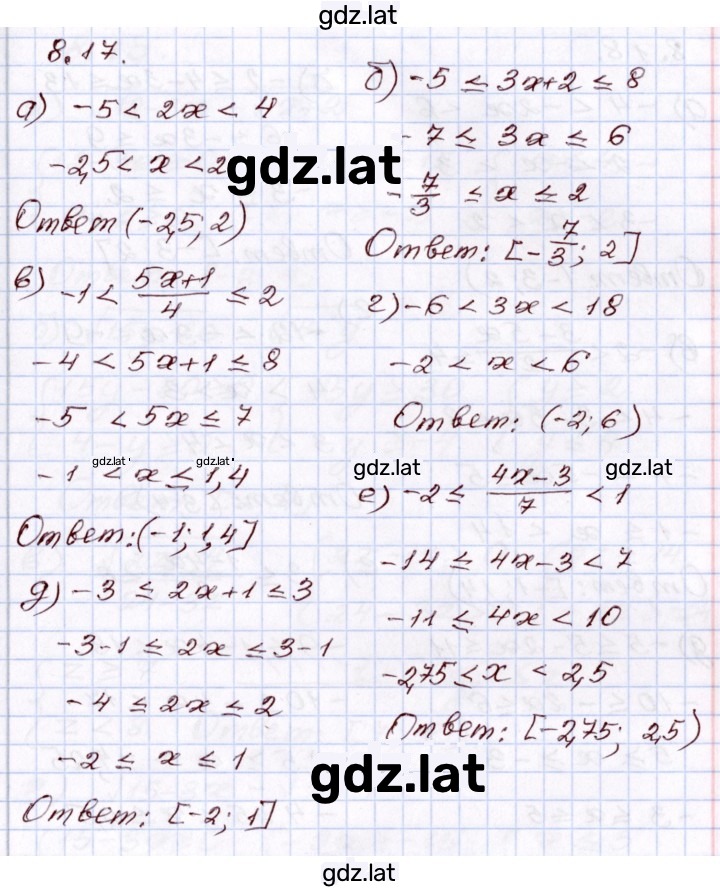 gdz.lat
8.17.
а) -5 < 2x < 4
-2,5 < x < 2
gdz.lat
Ответ (-2,5; 2)
б) -5 ≤ 3x+2 ≤ 8
-7 ≤ 3x ≤ 6
-7/3 ≤ x ≤ 2
Ответ: [-7/3; 2]
в) -1 < (5x+1)/4 ≤ 2
-4 < 5x+1 ≤ 8
-5 < 5x ≤ 7
gdz.lat gdz.lat
-1 < x ≤ 1,4
Ответ: (-1; 1,4]
г) -6 < 3x < 18
-2 < x < 6
Ответ: (-2; 6)
gdz.lat gdz.lat
д) -3 ≤ 2x+1 ≤ 3
-3-1 ≤ 2x ≤ 3-1
-4 ≤ 2x ≤ 2
-2 ≤ x ≤ 1
Ответ: [-2; 1]
е) -2 ≤ (4x-3)/7 < 1
-14 ≤ 4x-3 < 7
-11 ≤ 4x < 10
-2,75 ≤ x < 2,5
Ответ: [-2,75; 2,5)
gdz.lat
gdz.lat